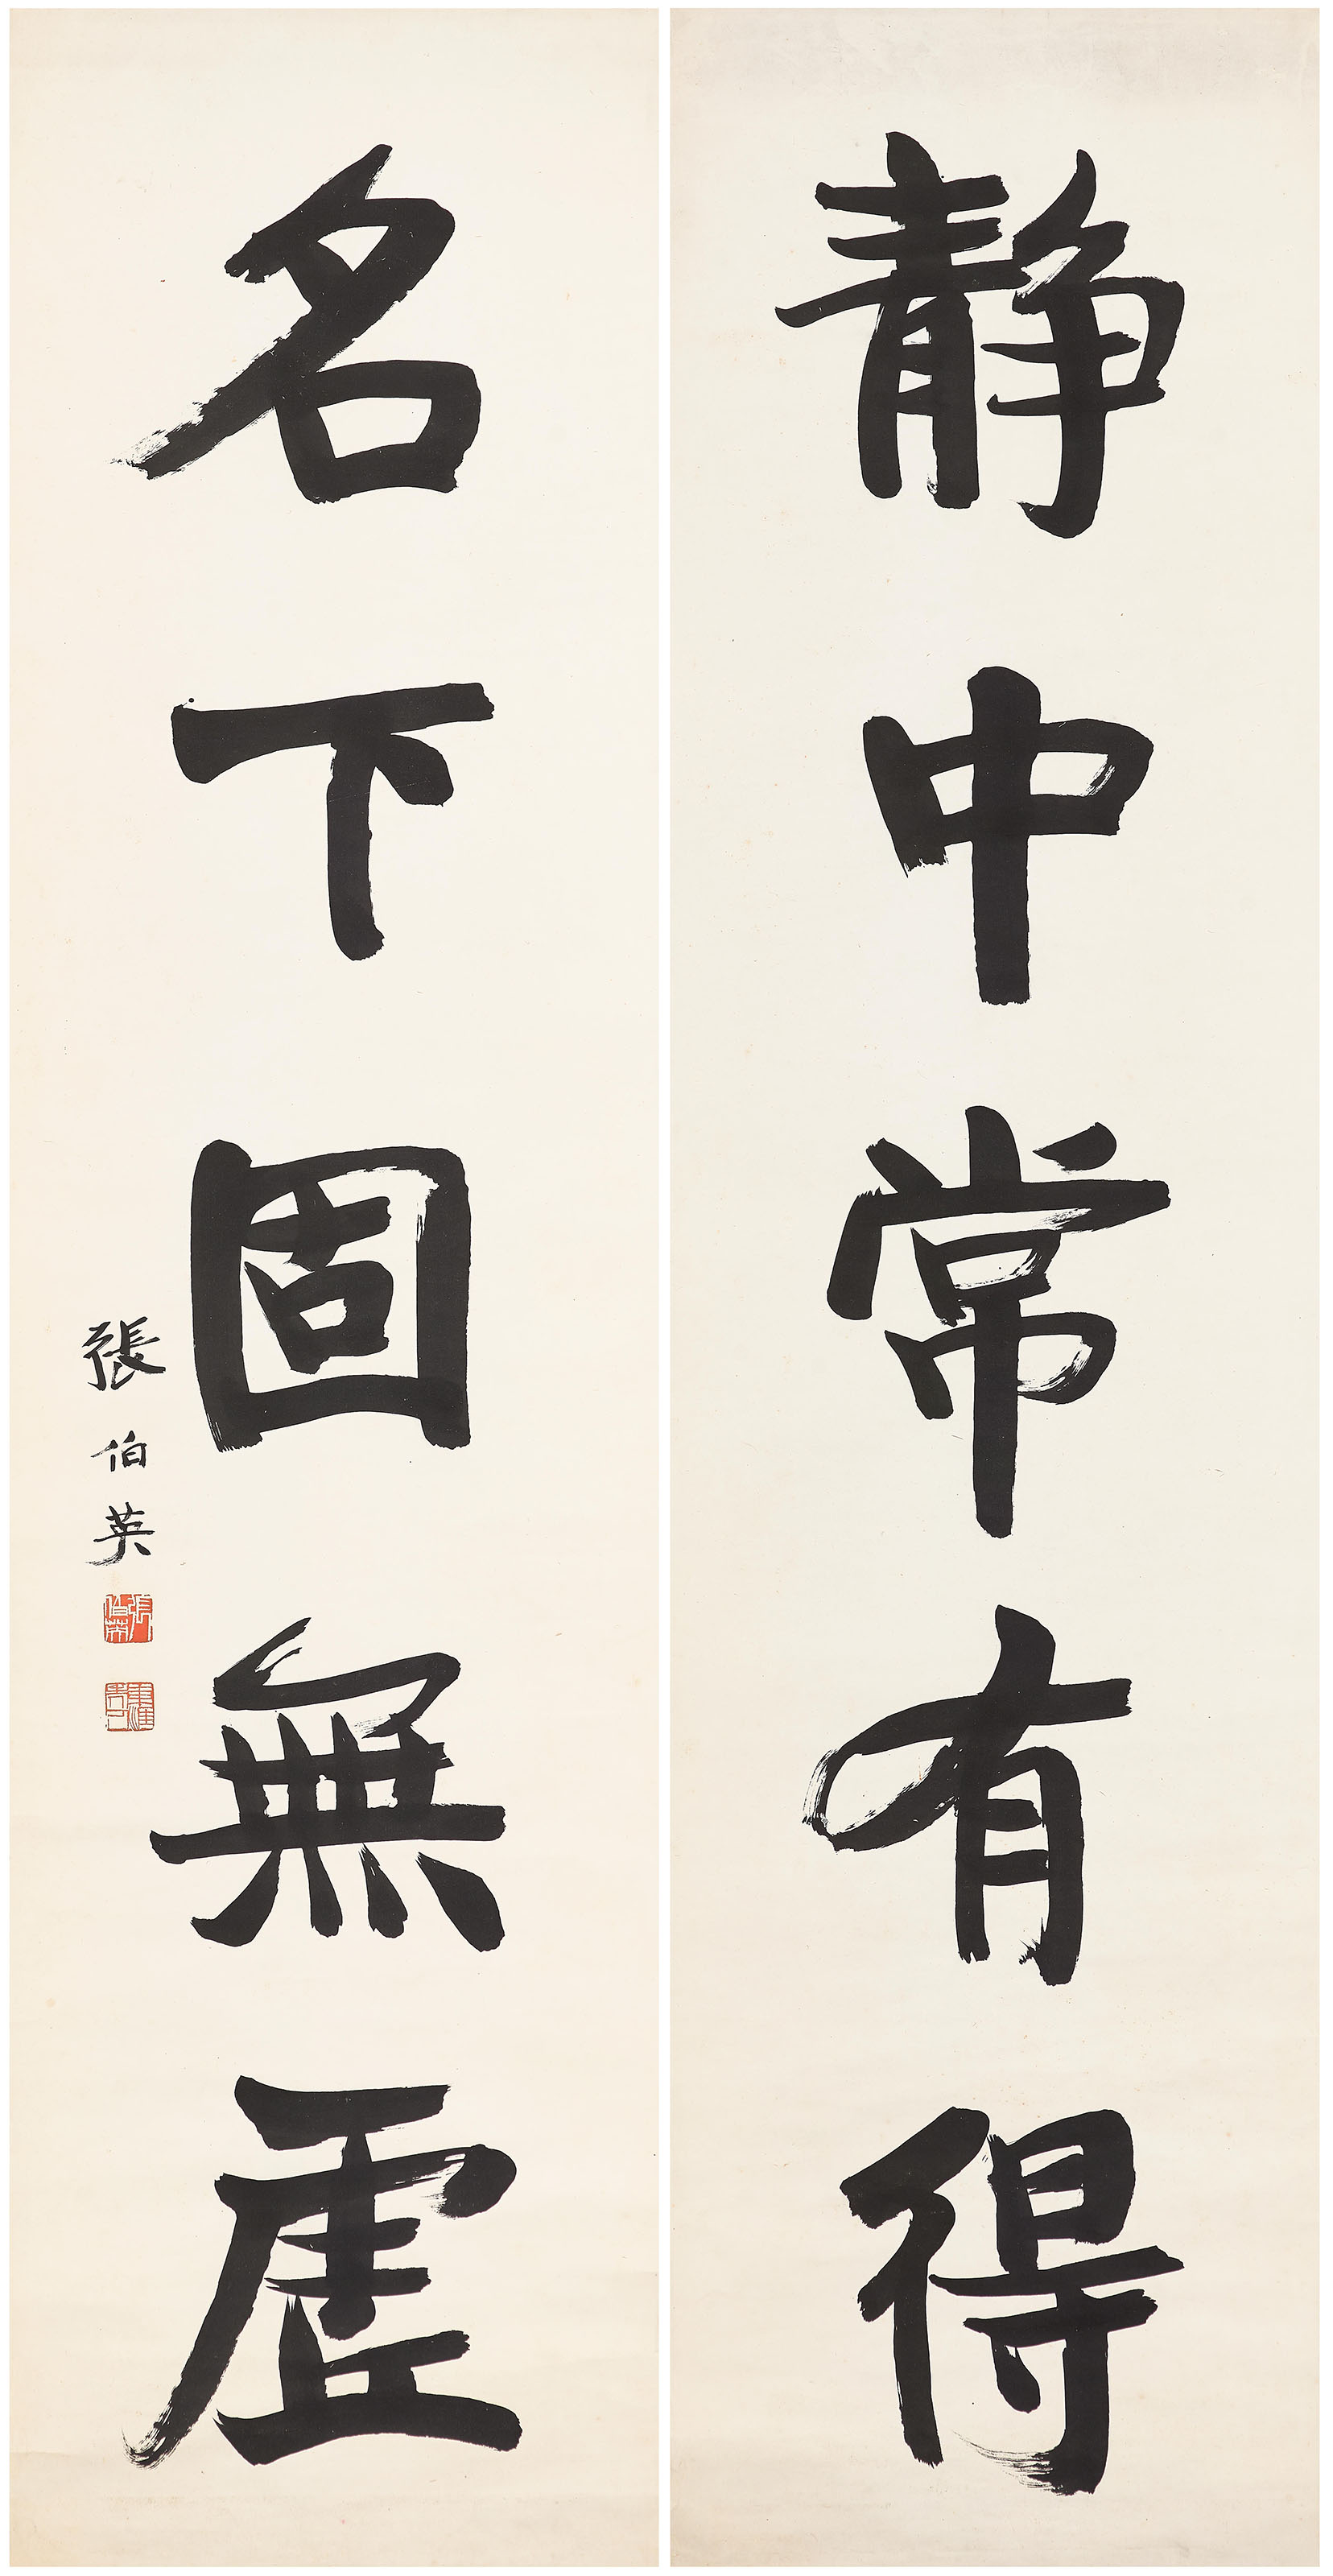 靜中常有得
名下固無虛
張伯英
張伯英